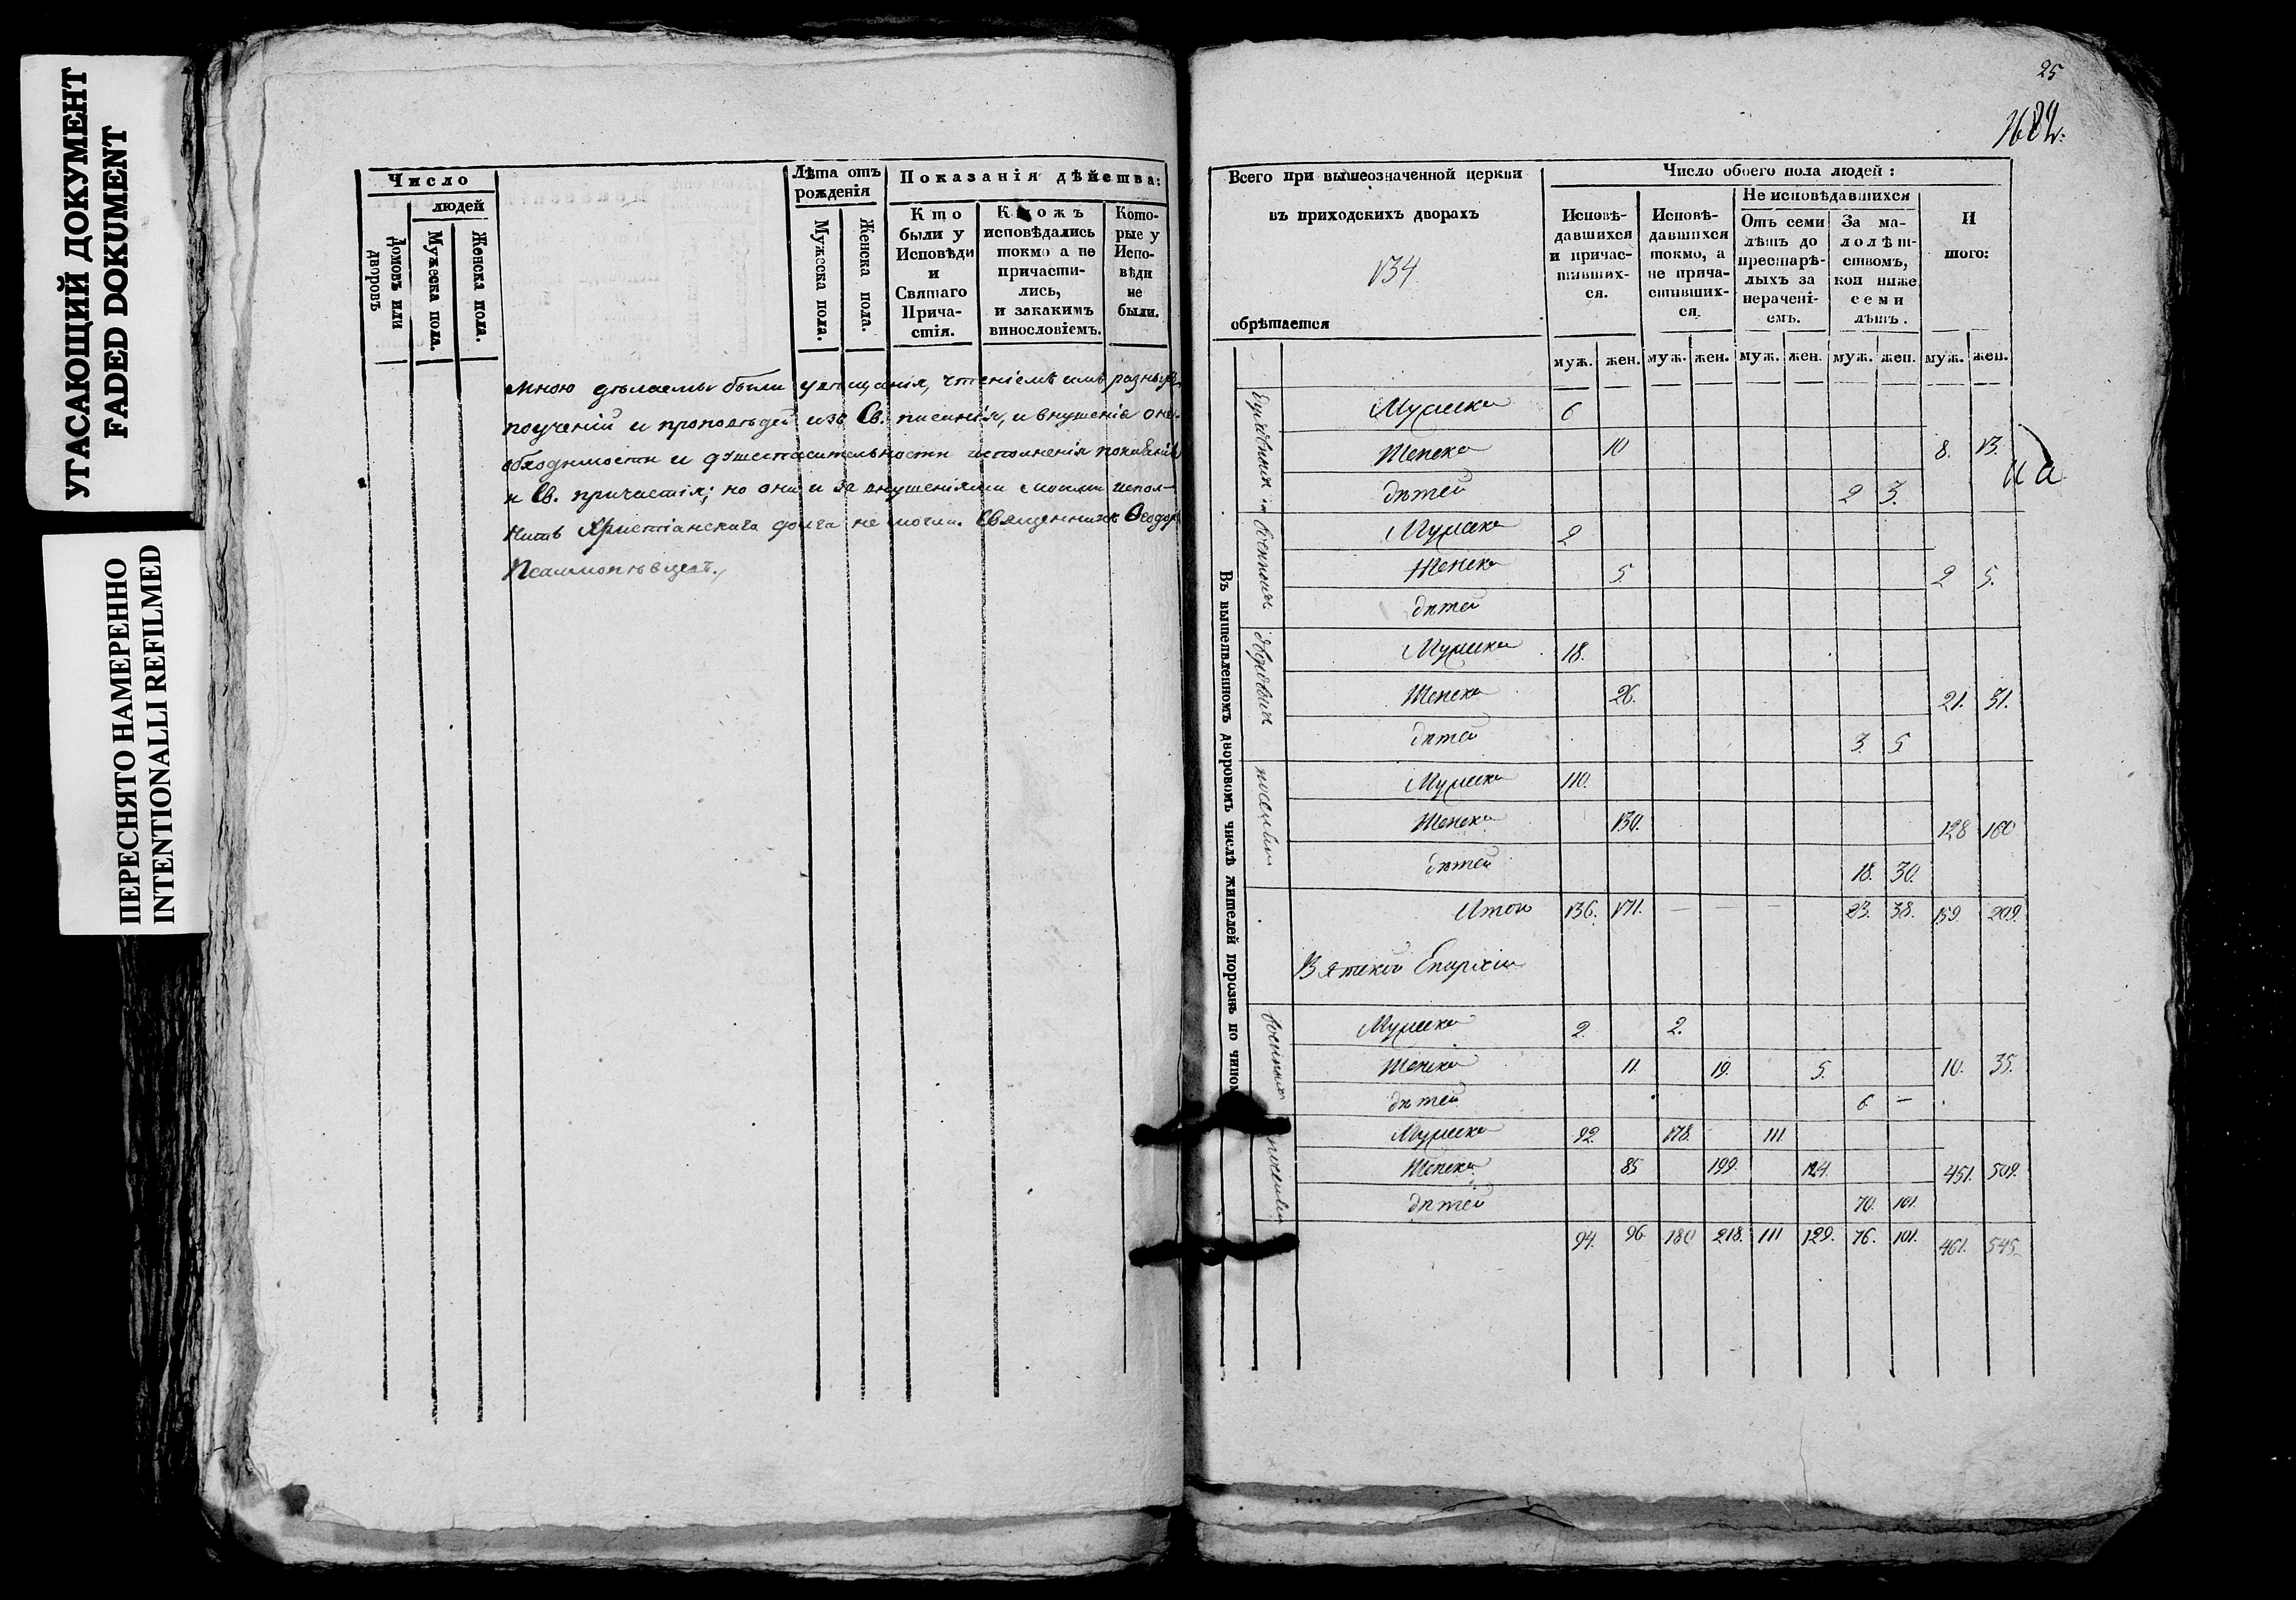 УГАСАЮЩИЙ ДОКУМЕНТ
FADED DOKUMENT
ПЕРЕСНЯТО НАМЕРЕННО
INTENTIONALLI REFILMED
Число
людей
Домовъ или дворовъ
Мужеска пола.
Женска пола.
Лѣта отъ рожденія
Мужеска пола.
Женска пола.
Показанія дѣйства:
Кто были у Исповѣди и Святаго Прича-стія.
исповѣдались токмо а не причасти-лись, и закакимъ винословіемъ.
Кото-рые у Испо-вѣди не были.
мною дѣлаемы были увѣщанія, чтеніемъ имъ разныхъ
поученій и проповѣдей изъ Св. писанія, и внушенія о не-
обходимости и душеспасительности исполненія покаянія
и Св. причастія; но они и за внушеніями моими испол-
нить Христіанскаго долга не могли. Священникъ Ѳеодоръ
Псалмопѣвцевъ.
25
Всего при вышеозначенной церкви
въ приходскихъ дворахъ
134
обрѣтается
Число обоего пола людей:
Исповѣ-давшихся и причас-тивших-ся.
Исповѣ-давшихся токмо, а не прича-стивших-ся
Не исповѣдавшихся
Отъ семи лѣтъ до престарѣ-лыхъ за нерачені-емъ.
За ма-лолѣт-ствомъ, кои ниже семи лѣтъ.
И того:
муж. жен. муж. жен. муж. жен. муж. жен. муж. жен.
Въ вышеявленномъ дворовомъ числѣ жителей порознь по чином
Мужеска 6
Женска 10 8. 13.
дѣтей 2 3.
военныхъ
Мужеска 2
Женска 5. 2 5.
дѣтей
Мужеска 18.
Женска 26. 21. 31.
дѣтей 3. 5
Мужеска 110.
Женска 130. 128 160
дѣтей 18. 30.
Итого 136. 171. — — — 23. 38. 159. 209.
Вятской Епархіи
военныхъ
Мужеска 2. 2.
Женска 11. 19. 5. 10. 35.
дѣтей 6 —
Мужеска 92. 178. 111
Женска 85 199. 124. 451. 509.
дѣтей 70. 101.
94. 96. 180 218. 111 129. 76. 101. 461. 545.